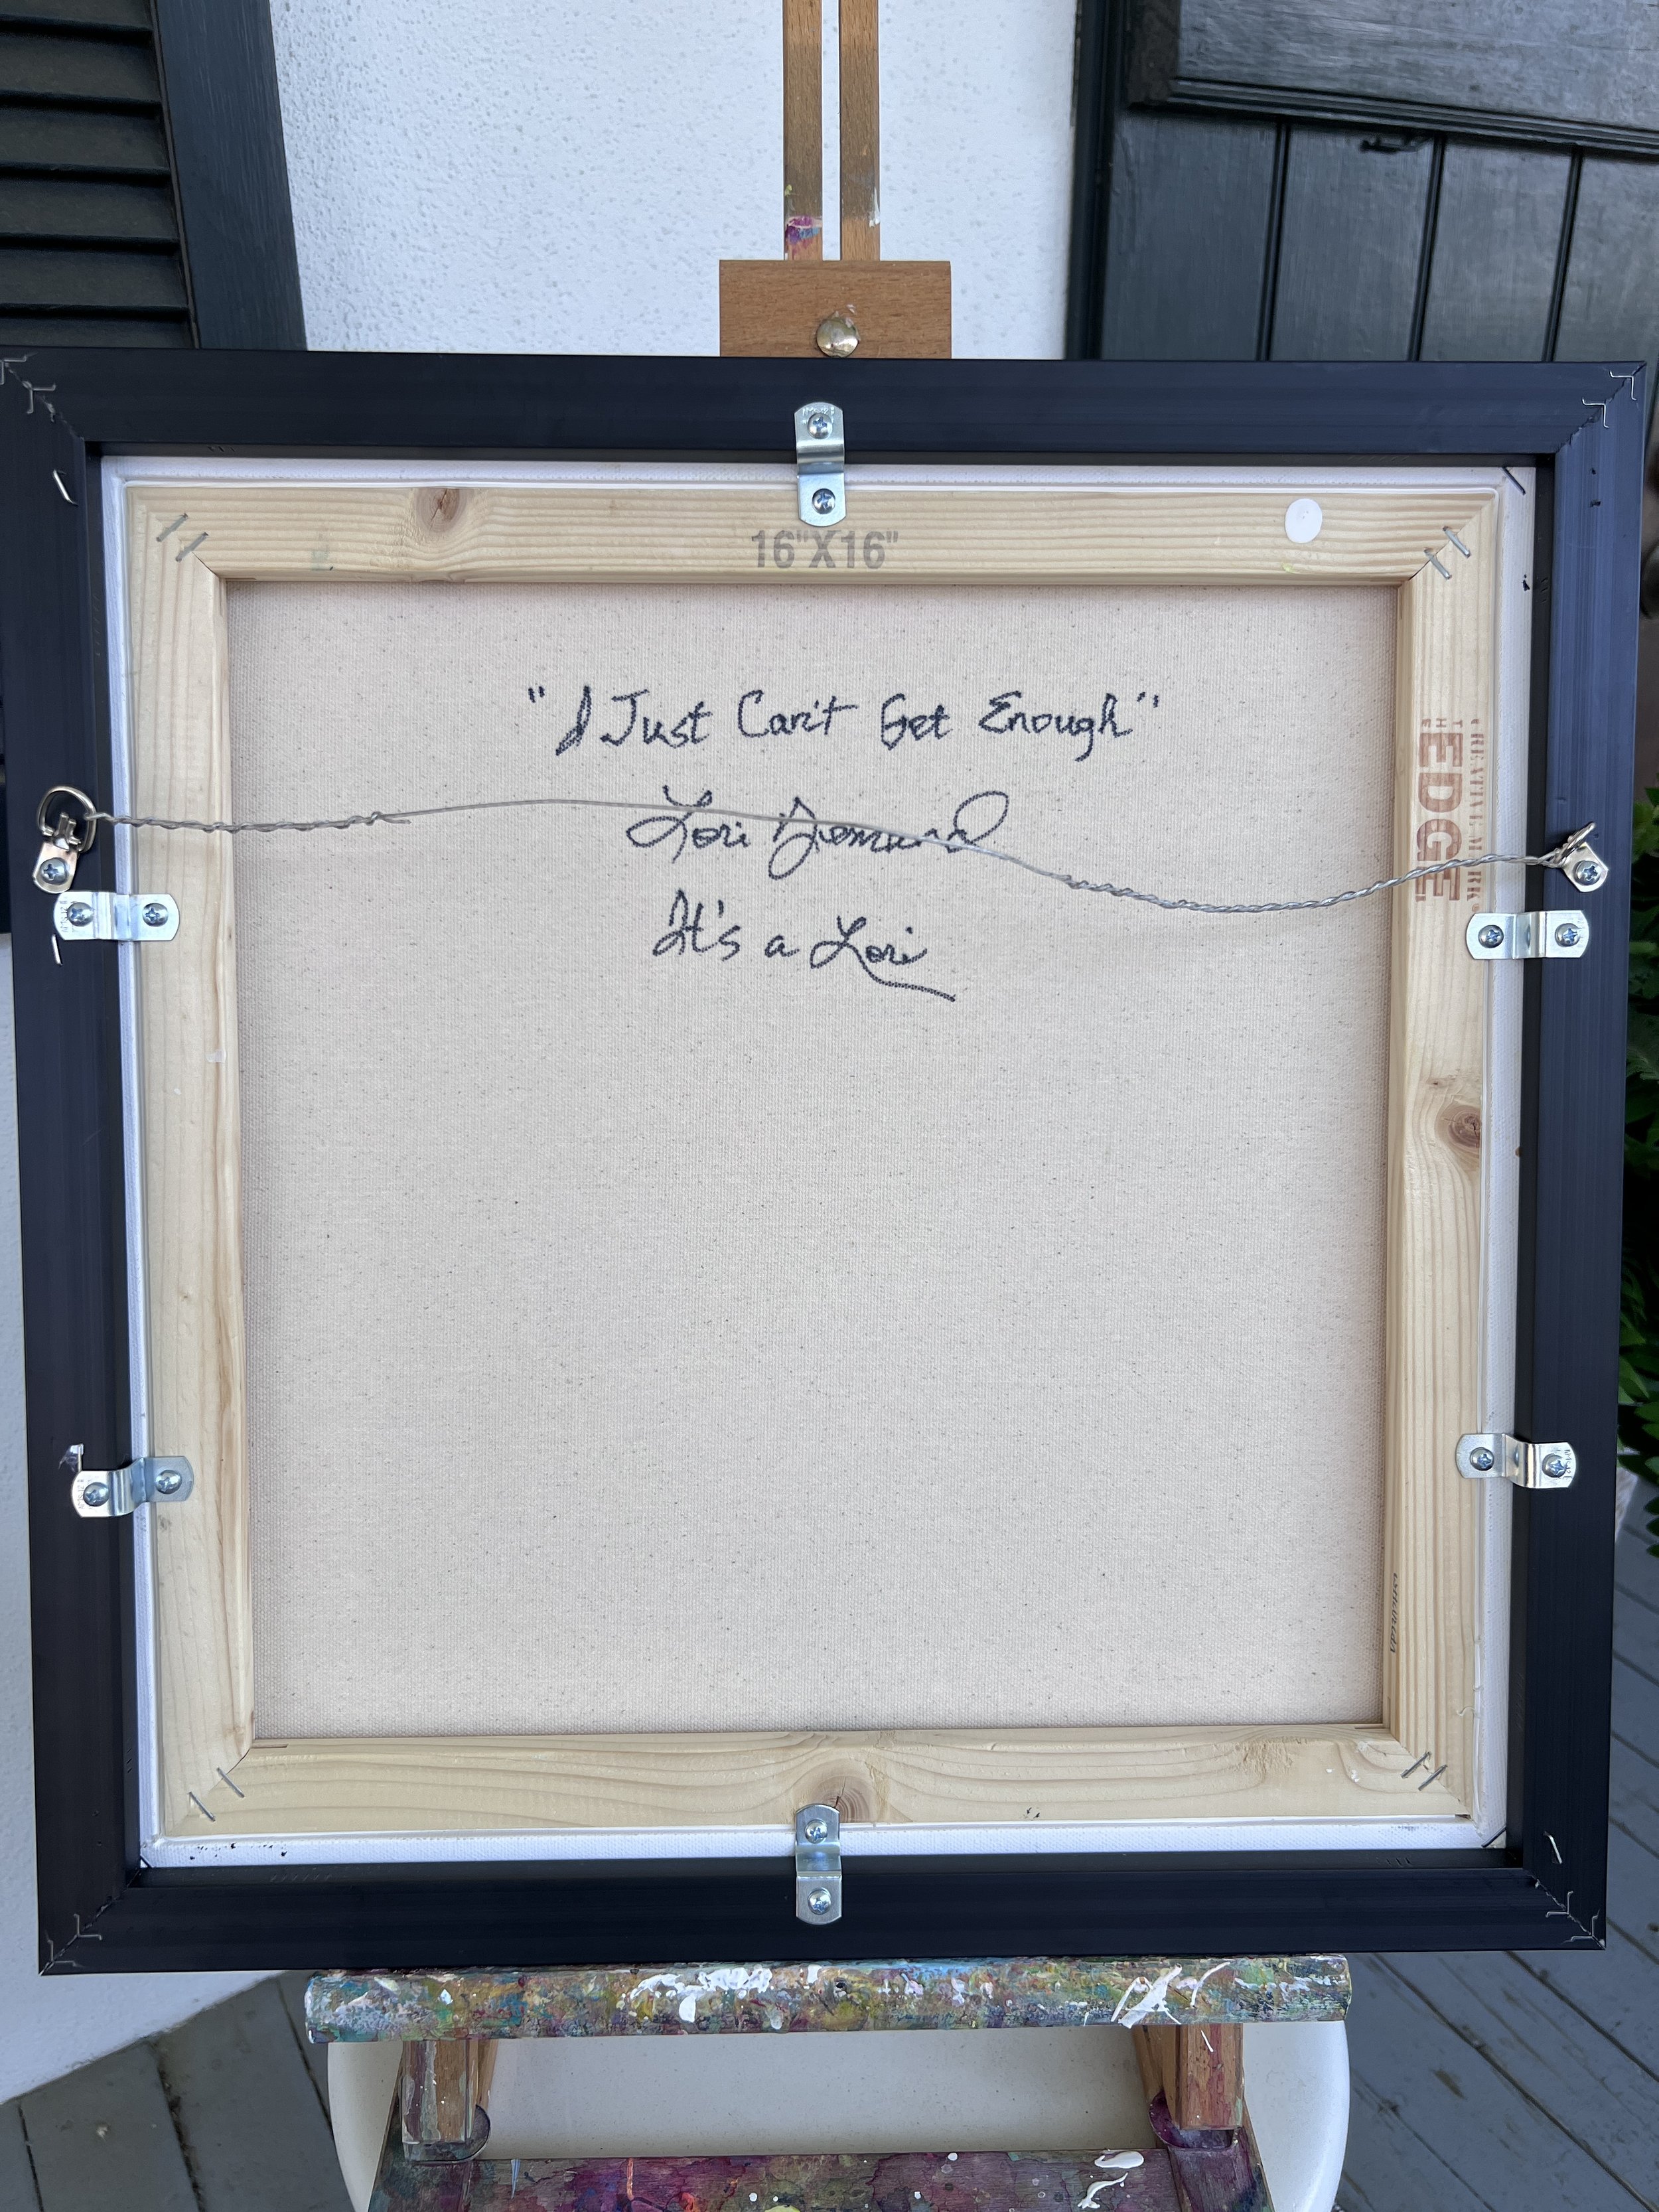 16"X16"
"I Just Can't Get Enough"
Lori
It's a Lori
CREATIVE MARK
THE
EDGE